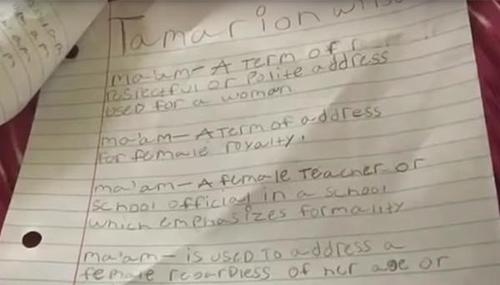 Tamarion
ma'am - A Term of r
respectful or Polite address
used for a woman
ma'am - A Term of address
for female royalty.
ma'am - A female Teacher or
school official in a school
which emphasizes formality
ma'am - is used To address a
female regardless of her age or